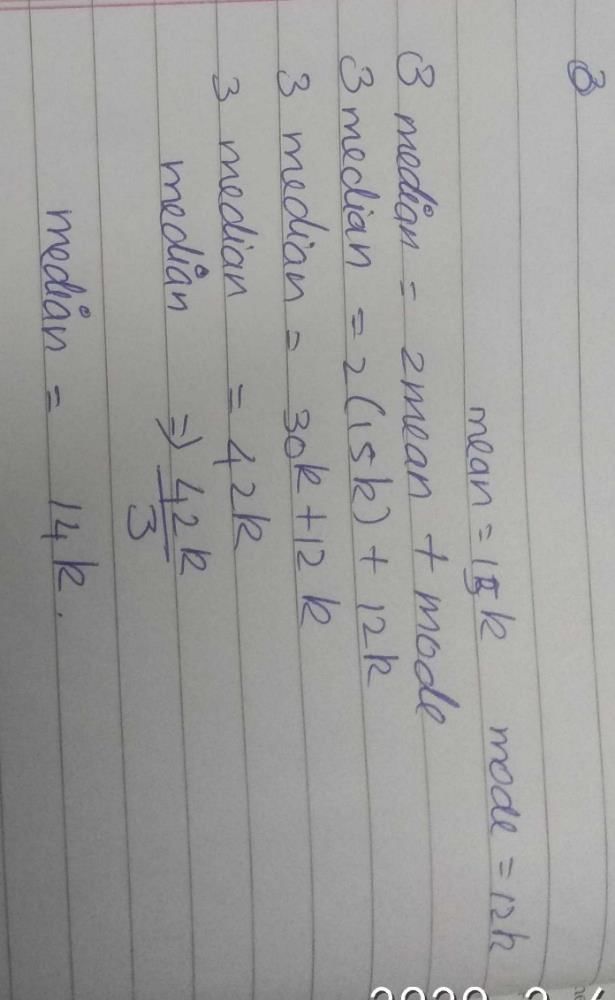 3
mean = 15k mode = 12k
3 median = 2 mean + mode
3 median = 2(15k) + 12k
3 median = 30k + 12k
3 median = 42k
median ⇒ 42k/3
median = 14k.